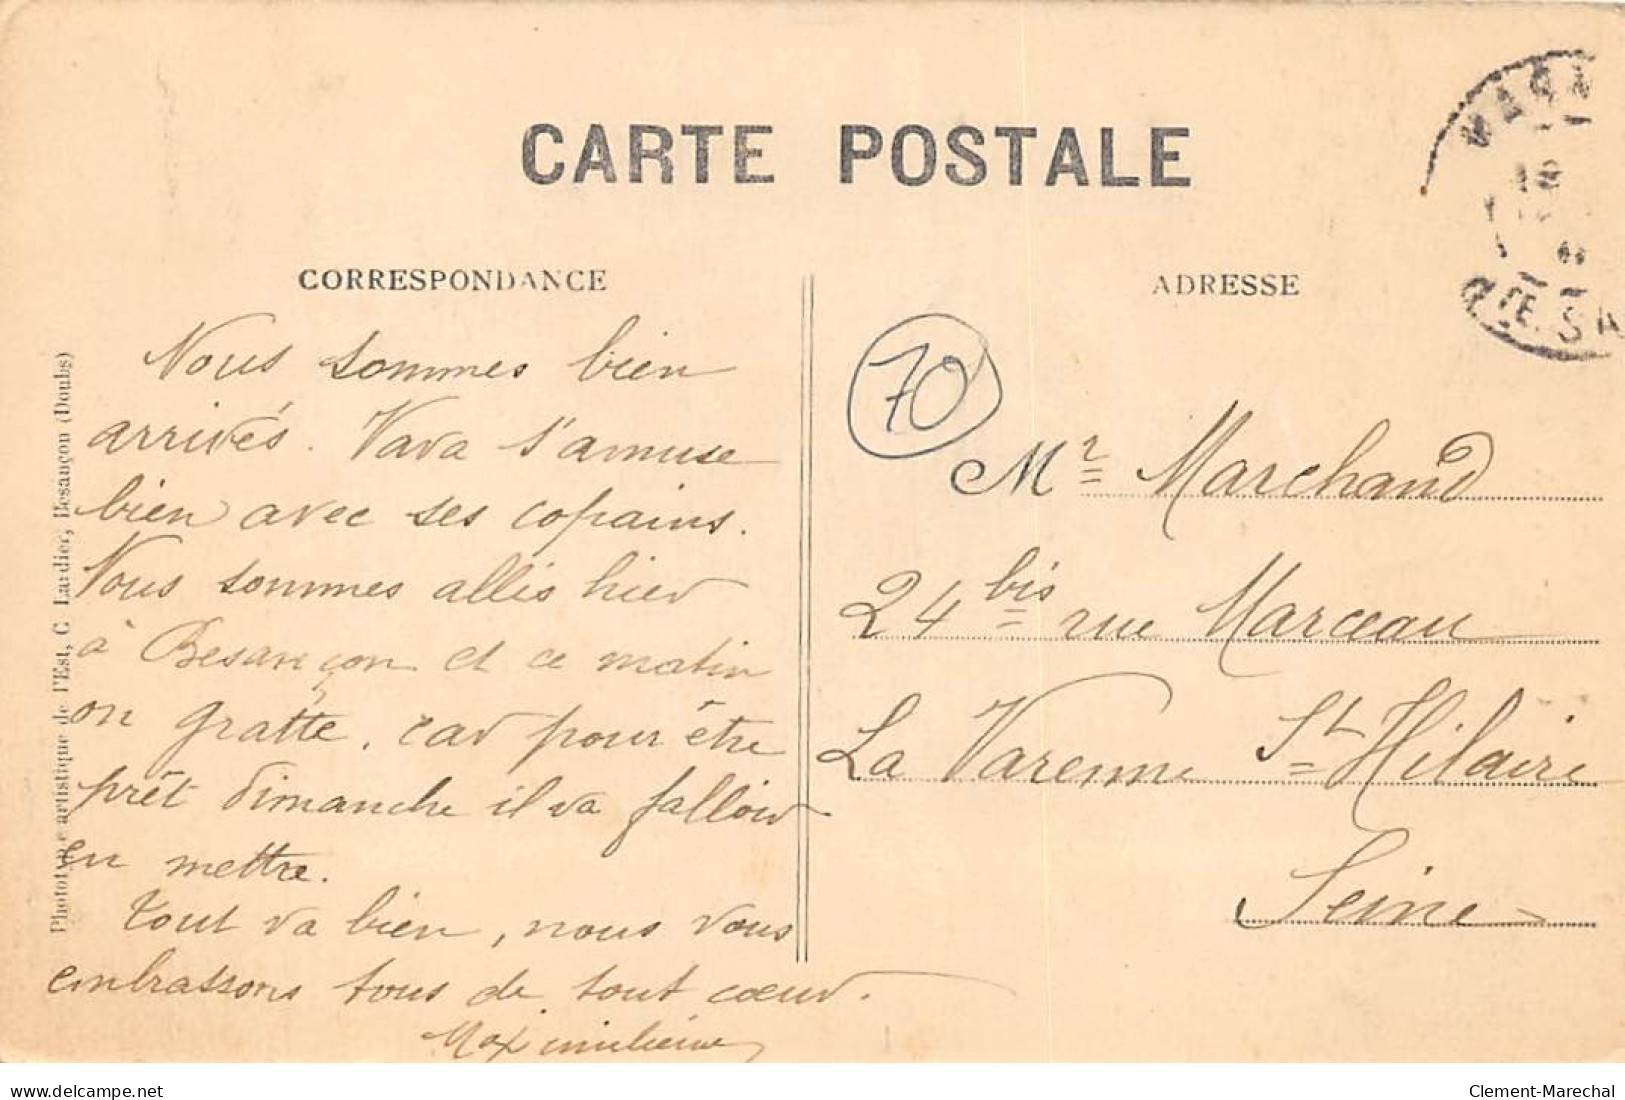 CARTE POSTALE
CORRESPONDANCE
Nous sommes bien
arrivés. Vava s'amuse
bien avec ses copains.
Nous sommes allés hier
à Besançon et ce matin
on gratte, car pour être
prêt dimanche il va falloir
en mettre.
Tout va bien, nous vous
embrassons tous de tout cœur.
Maximilienne
Phototypie artistique de l'Est, C. Lardier, Besançon (Doubs)
ADRESSE
70
Mr Marchand
24 bis rue Marceau
La Varenne St-Hilaire
Seine
TE-SA
www.delcampe.net
Clement-Marechal